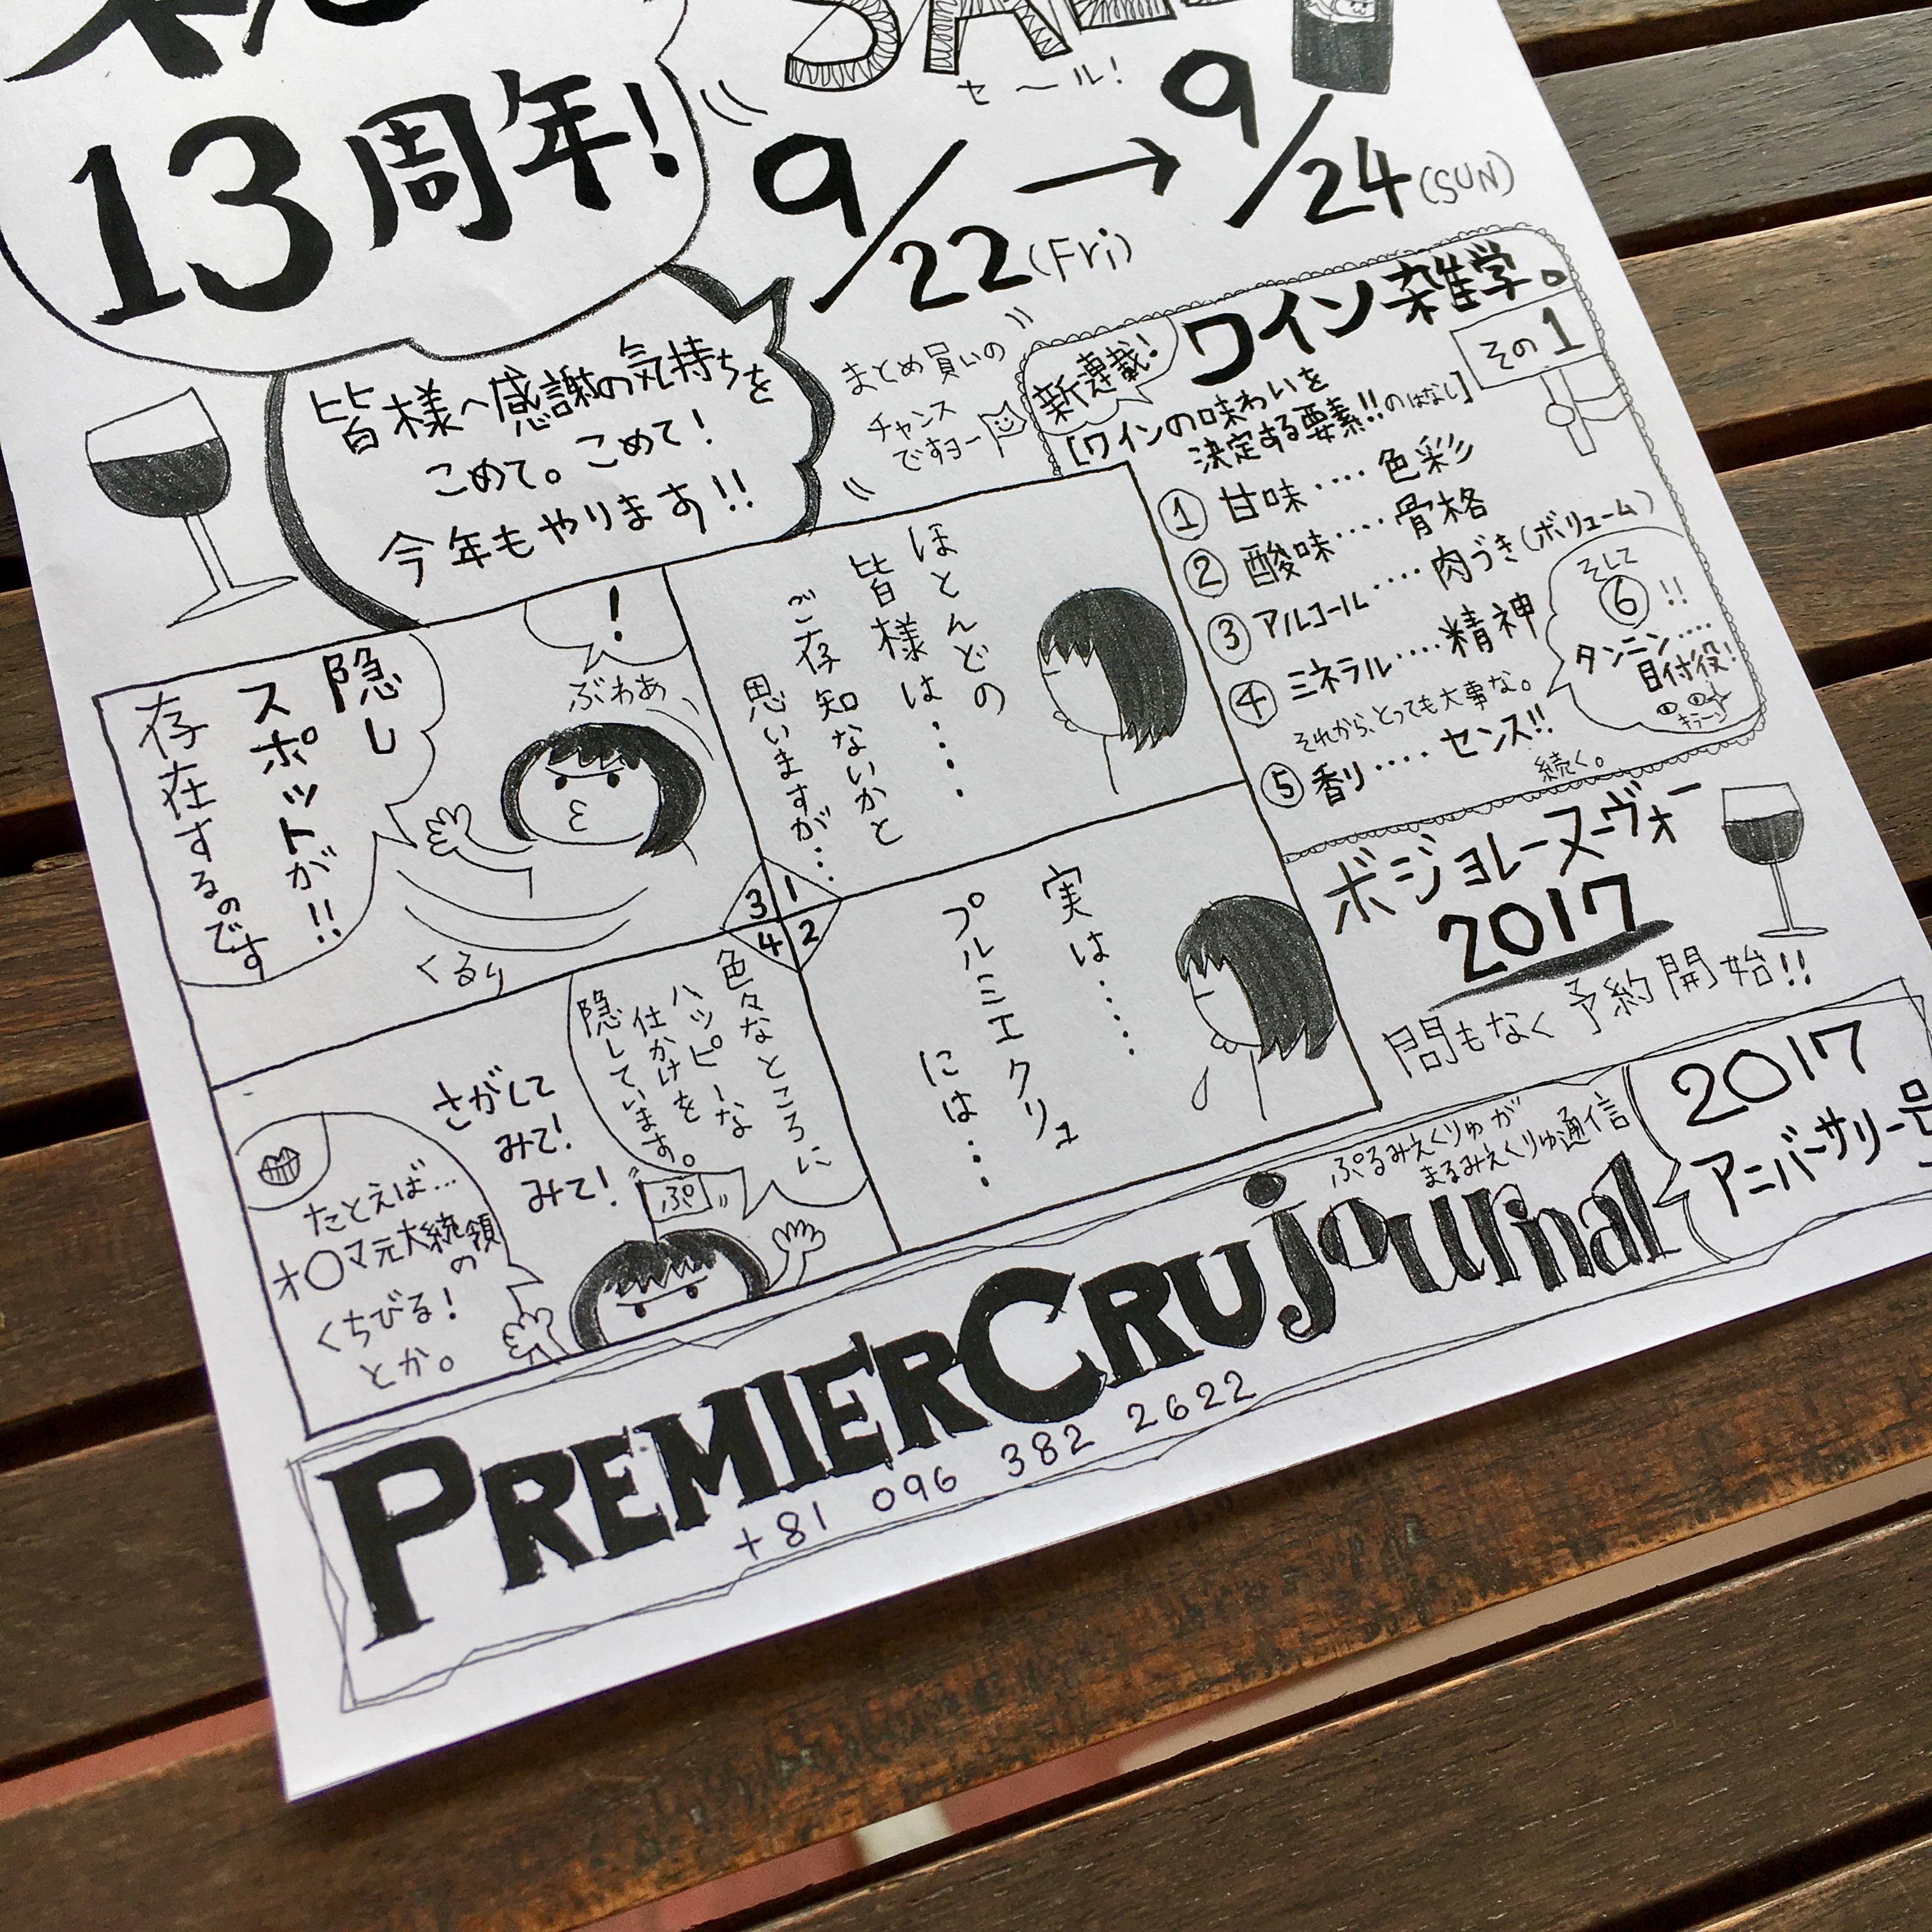 13周年!
SALE
セール!
9/22(Fri)→9/24(SUN)
皆様へ感謝の気持ちを
こめて。こめて!
今年もやります!!
まとめ買いの
チャンス
ですヨー
新連載!
ワイン雑学。
その1
[ワインの味わいを
決定する要素!!のはなし]
①甘味‥‥色彩
②酸味‥‥骨格
③アルコール‥‥肉づき(ボリューム)
④ミネラル‥‥精神
それから、とっても大事な。
⑤香り‥‥センス!!
そして
⑥!!
タンニン‥‥
目付役!
キラーン
続く。
ほとんどの
皆様は・・・・
ご存知ないかと
思いますが・・・
1
実は・・・・
プルミエクリュ
には・・・
2
!
ぶわあ
隠し
スポットが!!
存在するのです
くるり
3
色々なところに
ハッピーな
仕かけを
隠しています。
さがして
みて!
みて!
ぷ
たとえば…
オ〇マ元大統領
の
くちびる!
とか。
4
ボジョレーヌーヴォー
2017
間もなく予約開始!!
ぷるみえくりゅが
まるみえくりゅ通信
2017
アニバーサリー号
PREMIER CRU journal
+81 096 382 2622